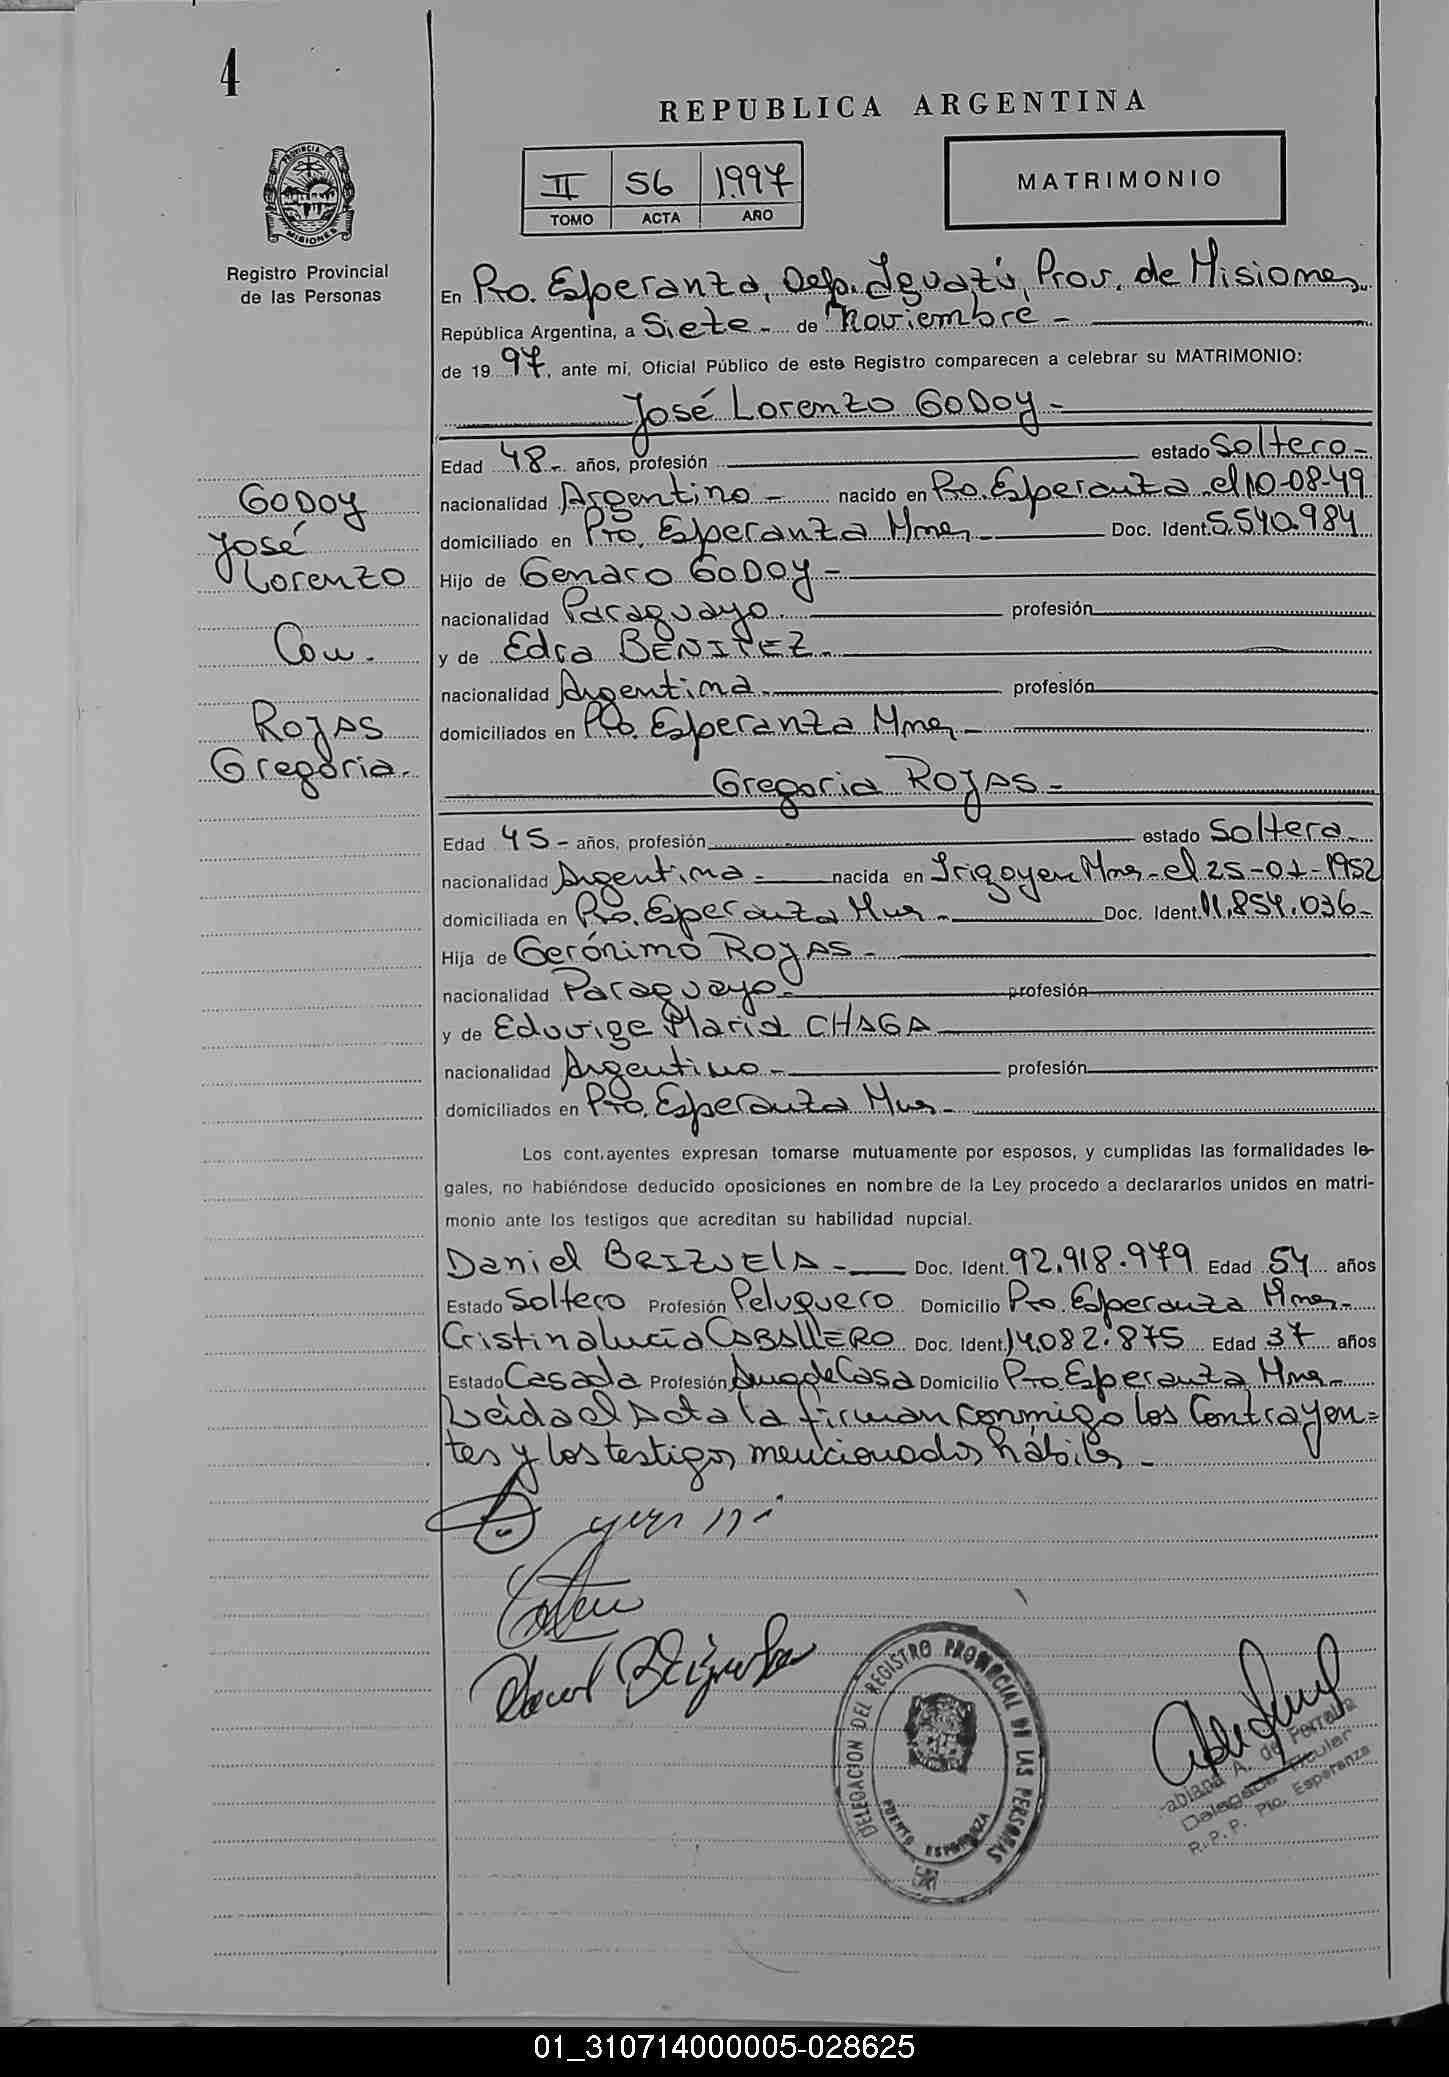 4
REPUBLICA ARGENTINA
PROVINCIA DE
MISIONES
Registro Provincial
de las Personas
II 56 1997
TOMO ACTA AÑO
MATRIMONIO
En Pto. Esperanza, Dep. Iguazú, Prov. de Misiones.
República Argentina, a Siete - de Noviembre -
de 1997, ante mí, Oficial Público de este Registro comparecen a celebrar su MATRIMONIO:
José Lorenzo GODOY -
Edad 48 - años, profesión estado Soltero -
nacionalidad Argentino - nacido en Pto. Esperanza el 10-08-49
domiciliado en Pto. Esperanza Mnes - Doc. Ident. 5.540.984
Hijo de Genaro GODOY -
nacionalidad Paraguayo. profesión
y de Edra BENITEZ -
nacionalidad Argentina - profesión
domiciliados en Pto. Esperanza Mnes -
GODOY
José
Lorenzo
Con -
ROJAS
Gregoria -
Gregoria ROJAS -
Edad 45 - años, profesión estado Soltera -
nacionalidad Argentina - nacida en Irigoyen Mnes - el 25-01-1952
domiciliada en Pto. Esperanza Mnes - Doc. Ident. 11.854.036 -
Hija de Gerónimo ROJAS -
nacionalidad Paraguayo - profesión
y de Eduvige Maria CHAGA
nacionalidad Argentino - profesión
domiciliados en Pto. Esperanza Mnes -
Los cont.ayentes expresan tomarse mutuamente por esposos, y cumplidas las formalidades le-
gales, no habiéndose deducido oposiciones en nombre de la Ley procedo a declararlos unidos en matri-
monio ante los testigos que acreditan su habilidad nupcial.
Daniel BRIZUELA - Doc. Ident. 92.918.979 Edad 54 años
Estado Soltero Profesión Peluquero Domicilio Pto. Esperanza Mnes -
Cristina Lucía CABALLERO Doc. Ident. 14.082.875 Edad 37 años
Estado Casada Profesión Ama de Casa Domicilio Pto Esperanza Mnes -
Leída el Acta la firman conmigo los Contrayen=
tes y los testigos mencionados hábiles -
DELEGACION DEL REGISTRO PROVINCIAL DE LAS PERSONAS
PUERTO ESPERANZA
abiana A. de Ferreira
Delegada Titular
R.P.P. Pto. Esperanza
01_310714000005-028625